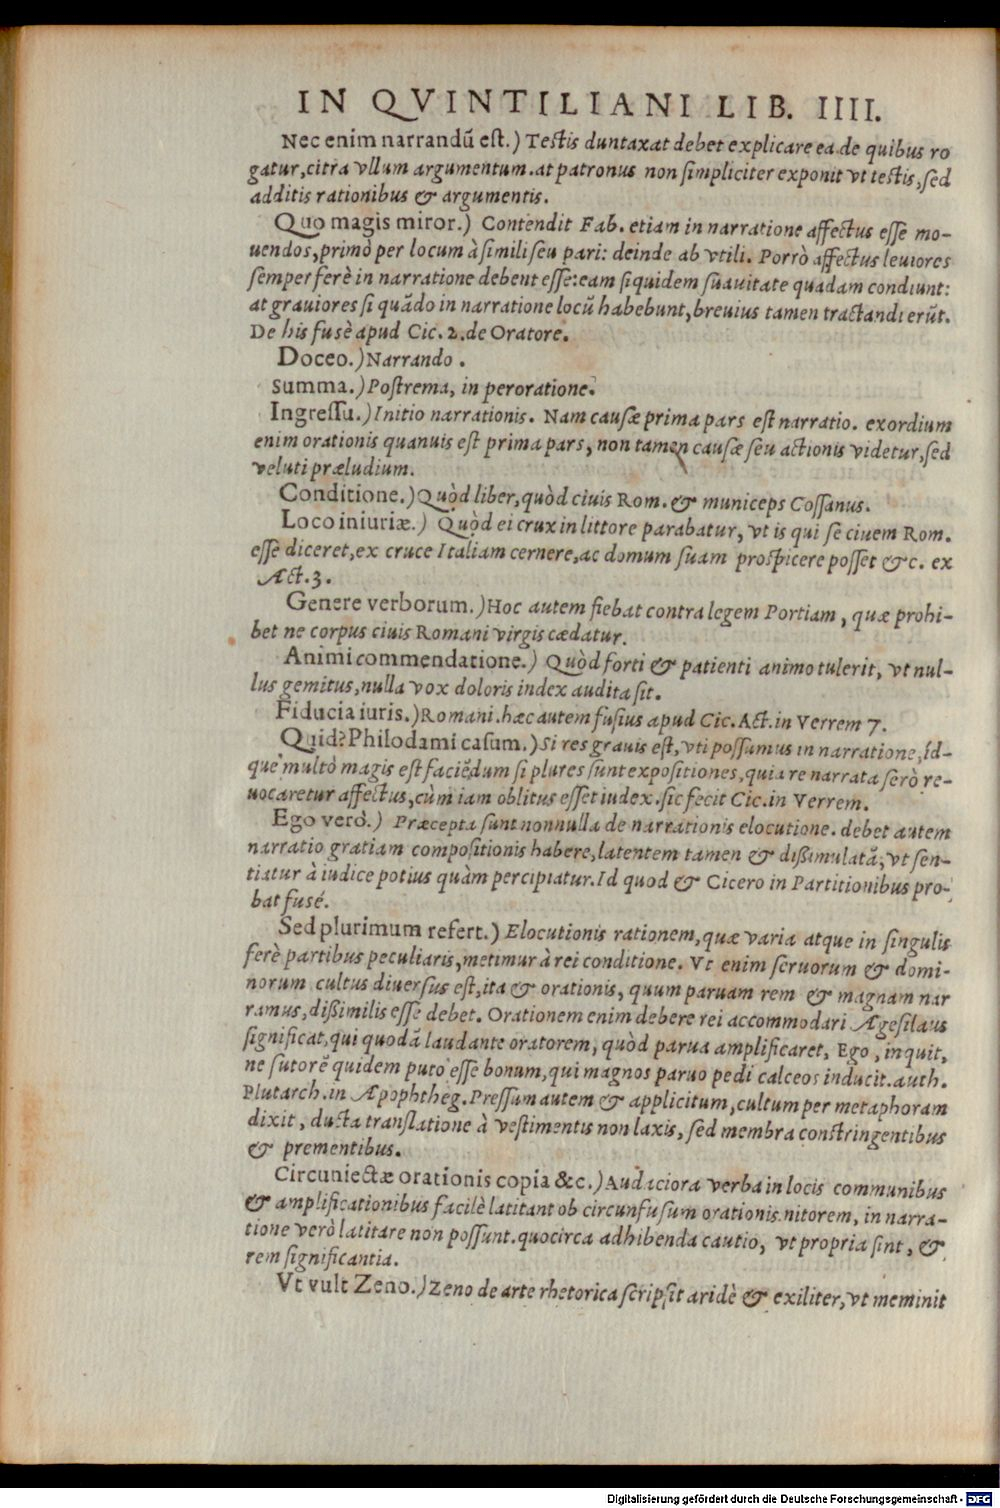 IN QVINTILIANI LIB. IIII.
Nec enim narrandū est.) Testis duntaxat debet explicare ea de quibus ro
gatur, citra vllum argumentum. at patronus non simpliciter exponit vt testis, sed
additis rationibus & argumentis.
Quo magis miror.) Contendit Fab. etiam in narratione affectus esse mo-
uendos, primò per locum à simili seu pari: deinde ab vtili. Porrò affectus leuiores
semper ferè in narratione debent esse: eam siquidem suauitate quadam condiunt:
at grauiores si quādo in narratione locū habebunt, breuius tamen tractandi erūt.
De his fusè apud Cic. 2. de Oratore.
Doceo.) Narrando.
Summa.) Postrema, in peroratione.
Ingressu.) Initio narrationis. Nam causæ prima pars est narratio. exordium
enim orationis quanuis est prima pars, non tamen causæ seu actionis videtur, sed
veluti præludium.
Conditione.) Quòd liber, quòd ciuis Rom. & municeps Cossanus.
Loco iniuriæ.) Quòd ei crux in littore parabatur, vt is qui se ciuem Rom.
esse diceret, ex cruce Italiam cernere, ac domum suam prospicere posset &c. ex
Act. 3.
Genere verborum.) Hoc autem fiebat contra legem Portiam, quæ prohi-
bet ne corpus ciuis Romani virgis cædatur.
Animi commendatione.) Quòd forti & patienti animo tulerit, vt nul-
lus gemitus, nulla vox doloris index audita sit.
Fiducia iuris.) Romani. hæc autem fusius apud Cic. Act. in Verrem 7.
Quid? Philodami casum.) Si res grauis est, vti possumus in narratione, id-
que multò magis est faciēdum si plures sunt expositiones, quia re narrata serò re-
uocaretur affectus, cùm iam oblitus esset iudex. sic fecit Cic. in Verrem.
Ego verò.) Præcepta sunt nonnulla de narrationis elocutione. debet autem
narratio gratiam compositionis habere, latentem tamen & dißimulatā, vt sen-
tiatur à iudice potius quàm percipiatur. Id quod & Cicero in Partitionibus pro-
bat fusé.
Sed plurimum refert.) Elocutionis rationem, quæ varia atque in singulis
ferè partibus peculiaris, metimur à rei conditione. Vt enim seruorum & domi-
norum cultus diuersus est, ita & orationis, quum paruam rem & magnam nar
ramus, dißimilis esse debet. Orationem enim debere rei accommodari Ægesilaus
significat, qui quodā laudante oratorem, quòd parua amplificaret, Ego, inquit,
ne sutorē quidem puto esse bonum, qui magnos paruo pedi calceos inducit. auth.
Plutarch. in Apophtheg. Pressum autem & applicitum, cultum per metaphoram
dixit, ducta translatione à vestimentis non laxis, sed membra constringentibus
& prementibus.
Circuniectæ orationis copia &c.) Audaciora verba in locis communibus
& amplificationibus facilè latitant ob circunfusum orationis nitorem, in narra-
tione verò latitare non possunt. quocirca adhibenda cautio, vt propria sint, &
rem significantia.
Vt vult Zeno.) Zeno de arte rhetorica scripsit aridè & exiliter, vt meminit
Digitalisierung gefördert durch die Deutsche Forschungsgemeinschaft - DFG